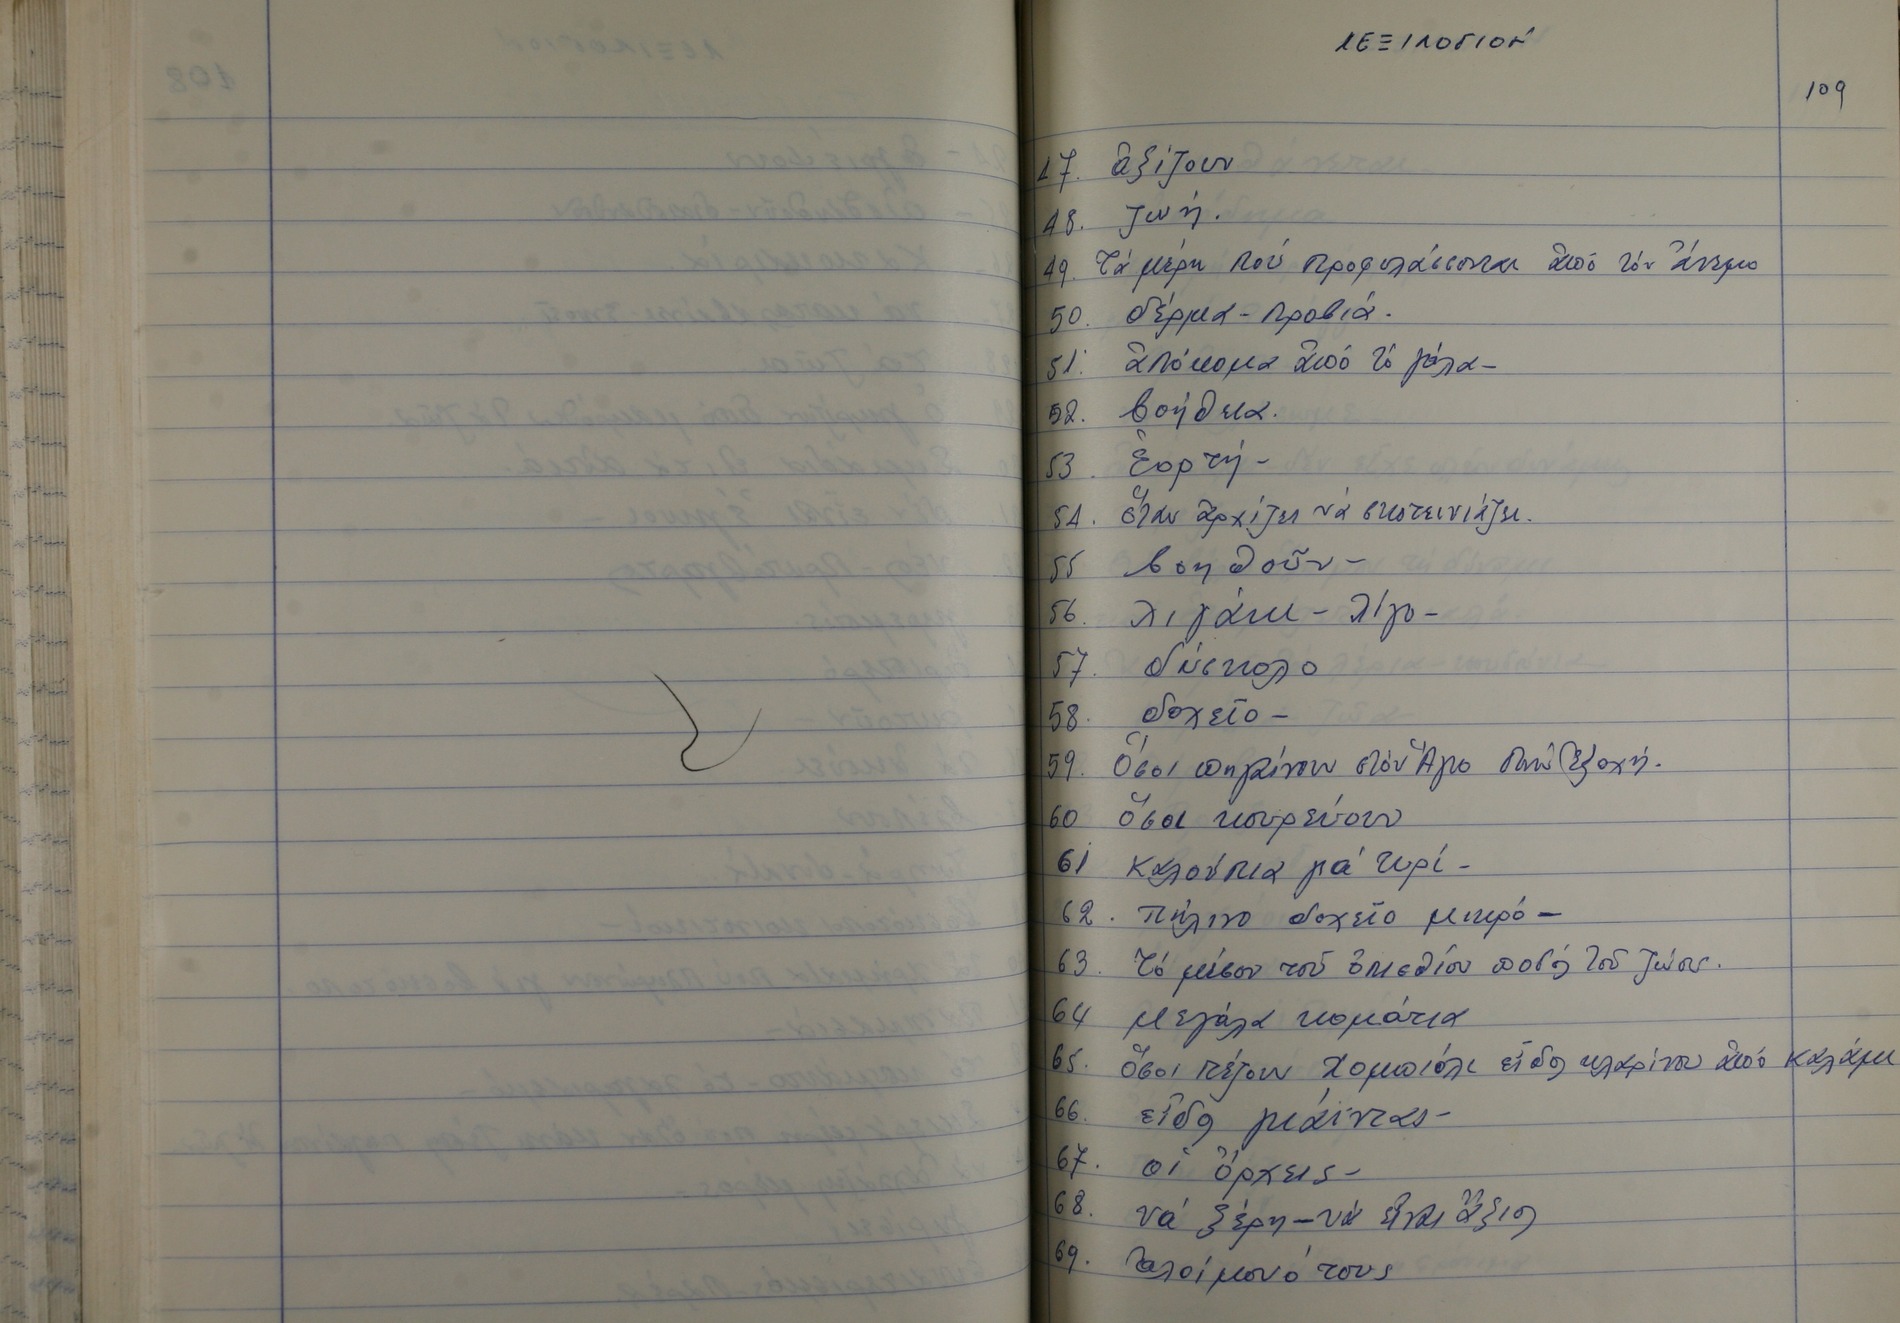 ΛΕΞΙΛΟΓΙΟΝ
109
47. ἀξίζουν
48. ζωή.
49. Τά μέρη πού προφυλάσσονται ἀπό τόν ἄνεμο
50. δέρμα - προβιά.
51. ἀπόκομα ἀπό τό γάλα -
52. βοήθεια.
53. Ἑορτή -
54. ὅταν ἀρχίζει νά σκοτεινιάζει.
55 βοηθοῦν -
56. λιγάκι - λίγο -
57. δύσκολο
58. δοχεῖο -
59. Ὅσοι πηγαίνουν στόν Ἅγιο στήν ἐξοχή.
60 ὅσοι κουρεύουν
61 καλούπια γιά τυρί -
62. πήλινο δοχεῖο μικρό -
63. τό μέσον τοῦ ὀπισθίου ποδός τοῦ ζώου.
64 μεγάλα κομάτια
65. ὅσοι παίζουν εἶδος κλαρίνου ἀπό καλάμι
66. εἶδος
67. οἱ ὄρχεις -
68. νά ξέρη - νά εἶναι ἄξιος
69. ἀλοίμονό τους